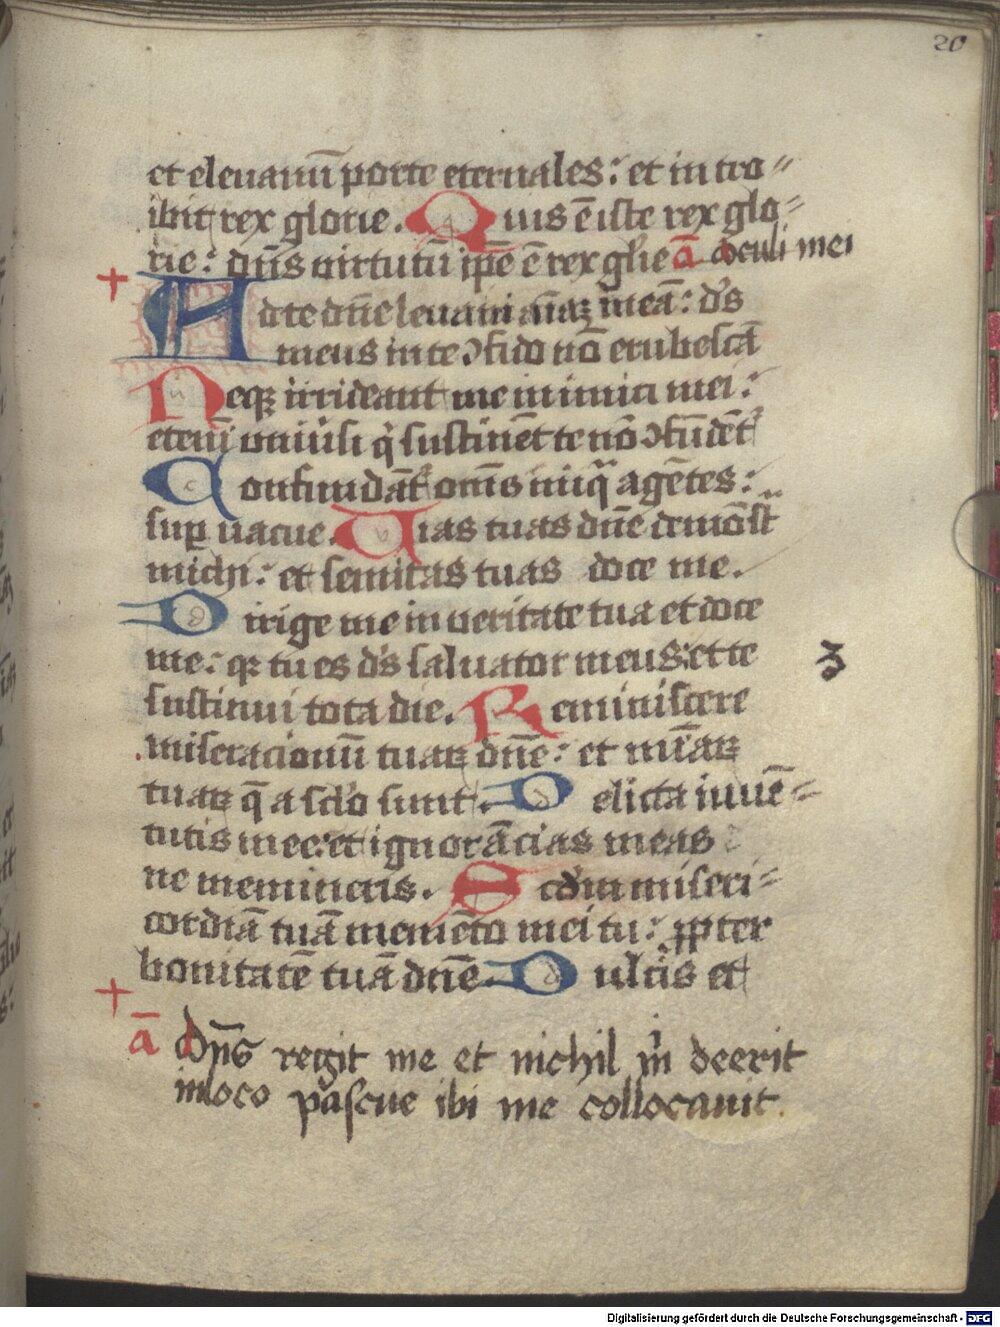 20
et eleuamī porte eternales: et intro⸗
ibit rex glorie. Quis ē iste rex glo⸗
rie: dn̄s uirtutū ip̄e ē rex gl̄ie ā oculi mei
Ad te dn̄e leuaui aīaꝫ meā: d's
meus in te ꝯfido nō erubescā
Neqꝫ irrideant me inimici mei:
eteni uniūsi q̇ sustinēt te nō ꝯfūdēt᷑
Confundāt᷑ om̄s iniq̄ agētes:
suꝑ uacue. Uias tuas dn̄e demōst᷑
michi: et semitas tuas doce me.
Dirige me in ueritate tua et doce
me: qꝛ tu es d's saluator meus: et te
sustinui tota die. Reminiscere
miseracionū tuaꝝ dn̄e: et mīaꝝ
tuaꝝ q̄ a sclo sunt. Delicta iuuē⸗
tutis mee: et ignorācias meas
ne memineris. Scdm miseri⸗
cordiā tuā memēto mei tu: ꝓpter
bonitatē tuā dn̄e. Dulcis et
3
ā Dn̄s regit me et nichil m̄ deerit
in loco pascue ibi me collocauit.
Digitalisierung gefördert durch die Deutsche Forschungsgemeinschaft - DFG